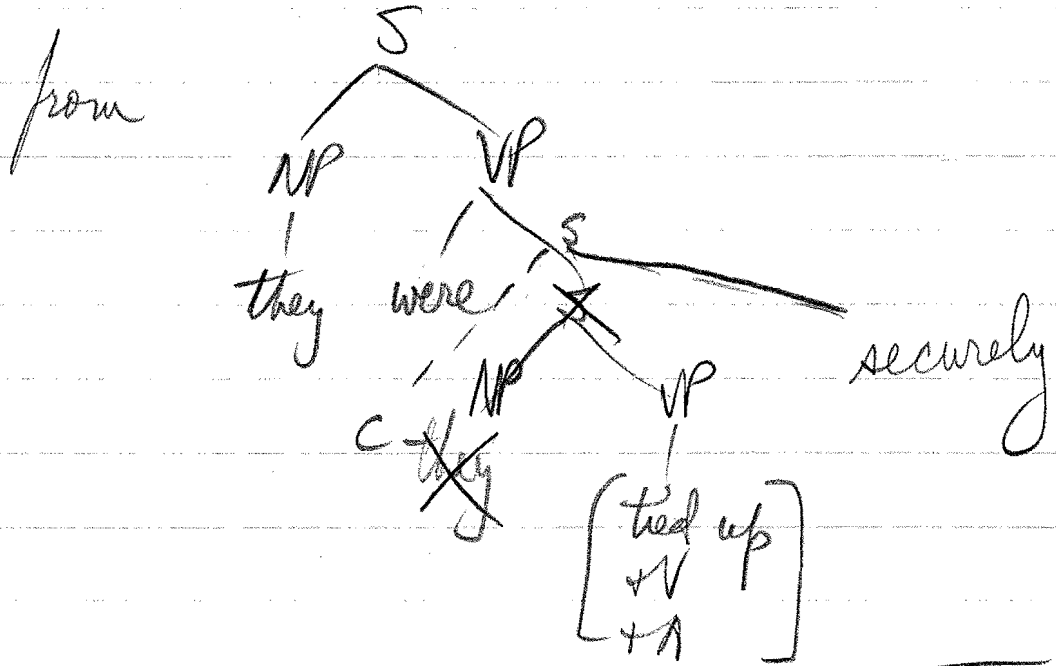 S
from
NP VP
they were S
securely
NP VP
C they
tied up
+V
+A